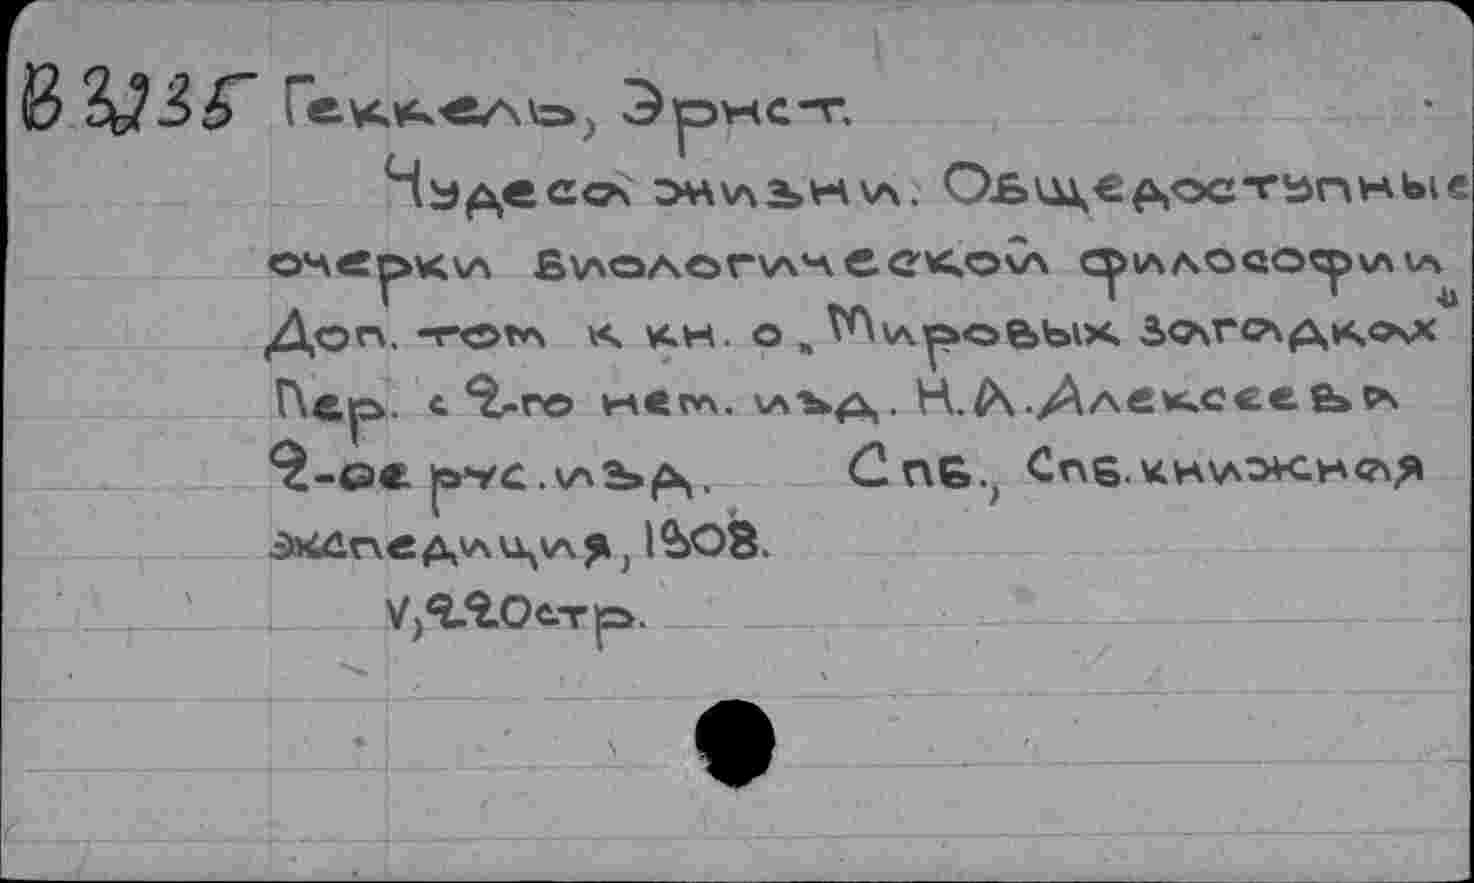 Геккель, Эрнст.
Чудеса жизни. Общедоступные
очерки биологической философии
Доп. том к кн. о „Мировых загадках"
Пер. с 2-го нем. изд. Н.А.Алексеева
2-ое рус.изд. Спб., Спб.книжная
экспедиция, 1908.
V,220стр.